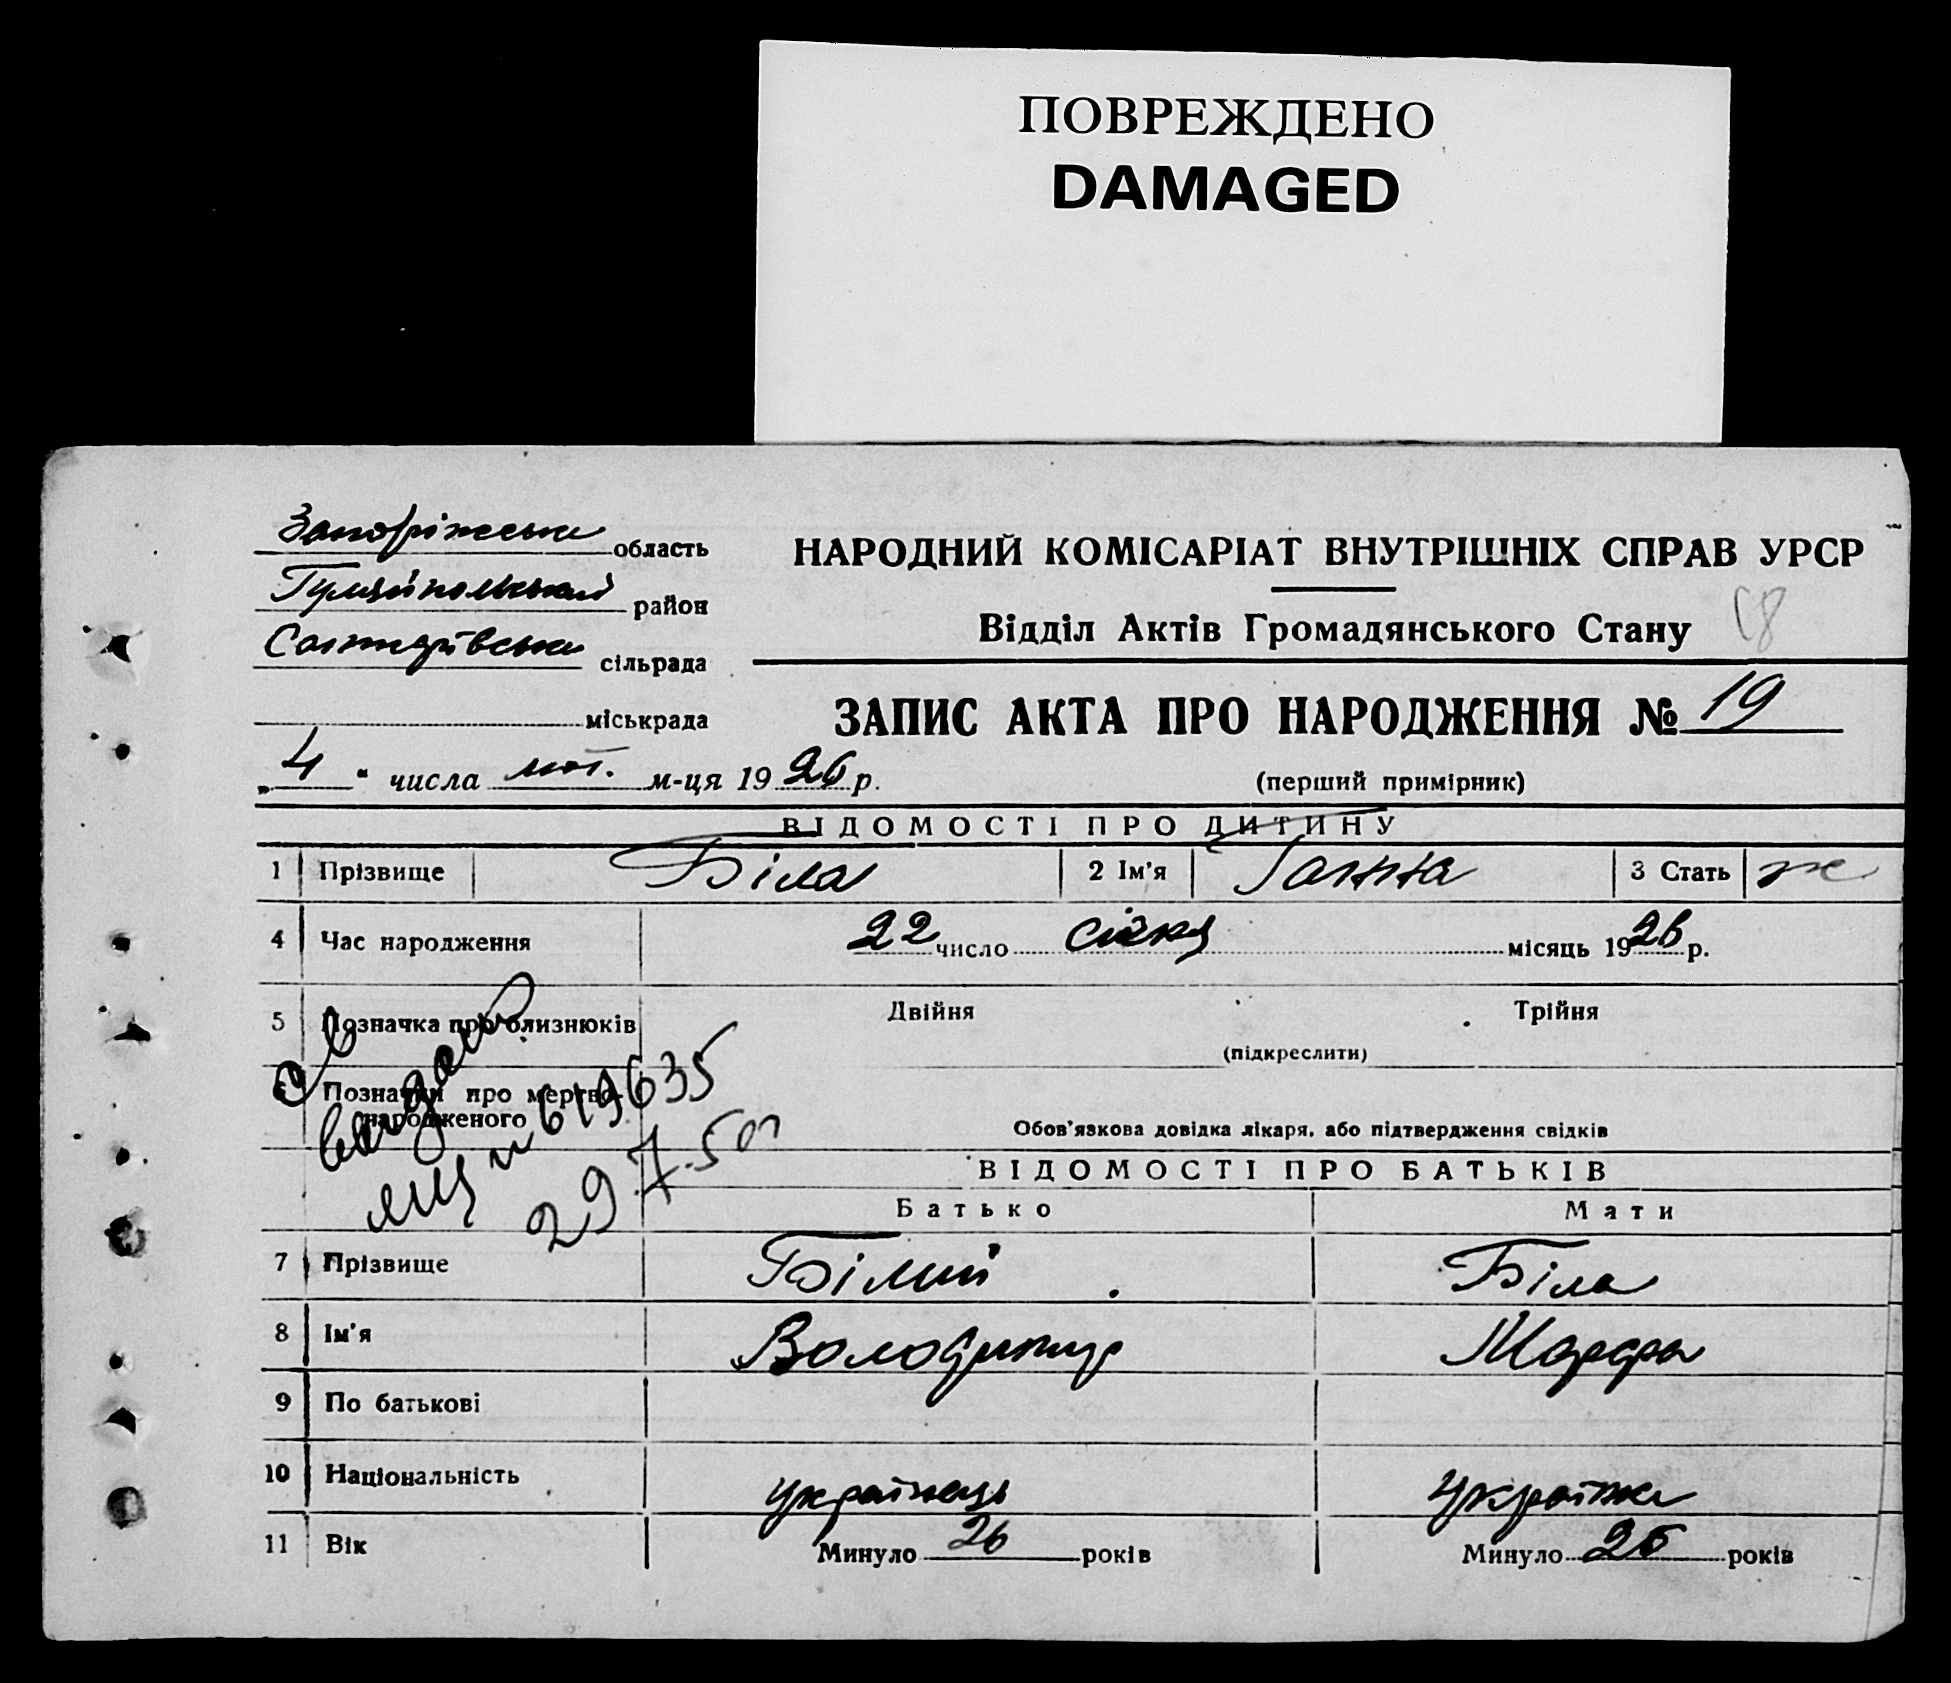 ПОВРЕЖДЕНО
DAMAGED
Запоріжська область
Гуляйпольський район
сільрада
міськрада
НАРОДНИЙ КОМІСАРІАТ ВНУТРІШНІХ СПРАВ УРСР
Відділ Актів Громадянського Стану 18
ЗАПИС АКТА ПРО НАРОДЖЕННЯ № 19
„ 4 “ числа лют. м-ця 19 26 р.
(перший примірник)
ВІДОМОСТІ ПРО ДИТИНУ
1 Прізвище Біла 2 Ім'я Ганна 3 Стать ж
4 Час народження 22 число січня місяць 19 26 р.
5 Позначка про близнюків Двійня Трійня
(підкреслити)
6 Позначки про мертво-
народженого
Обов'язкова довідка лікаря, або підтвердження свідків
св во
видано
619635
29.7.50
ВІДОМОСТІ ПРО БАТЬКІВ
Батько Мати
7 Прізвище Білий Біла
8 Ім'я Володимир Марфа
9 По батькові
10 Національність українець українка
11 Вік Минуло 26 років Минуло 25 років